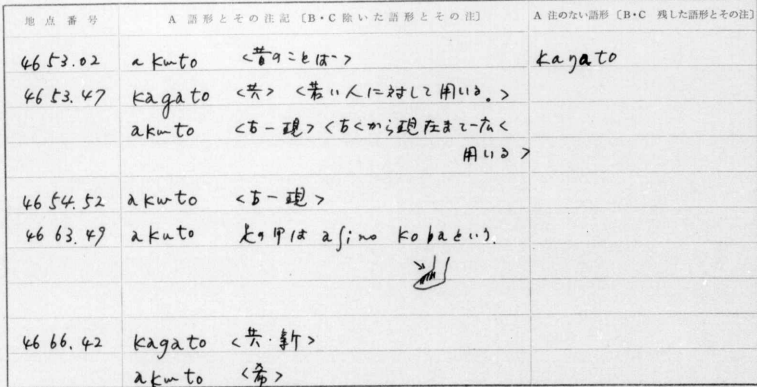 地点番号 A 語形とその注記〔B・C 除いた語形とその注〕 A 注のない語形〔B・C 残した語形とその注〕
4653.02 akɯto <昔のことば> kaŋato
4653.47 kagato <共> <若い人に対して用いる。>
akɯto <古－現> <古くから現在まで一広く
用いる>
4654.52 akɯto <古－現>
4663.49 akɯto の甲は aʃino kobaという.
4666.42 kagato <共・新>
akɯto <希>